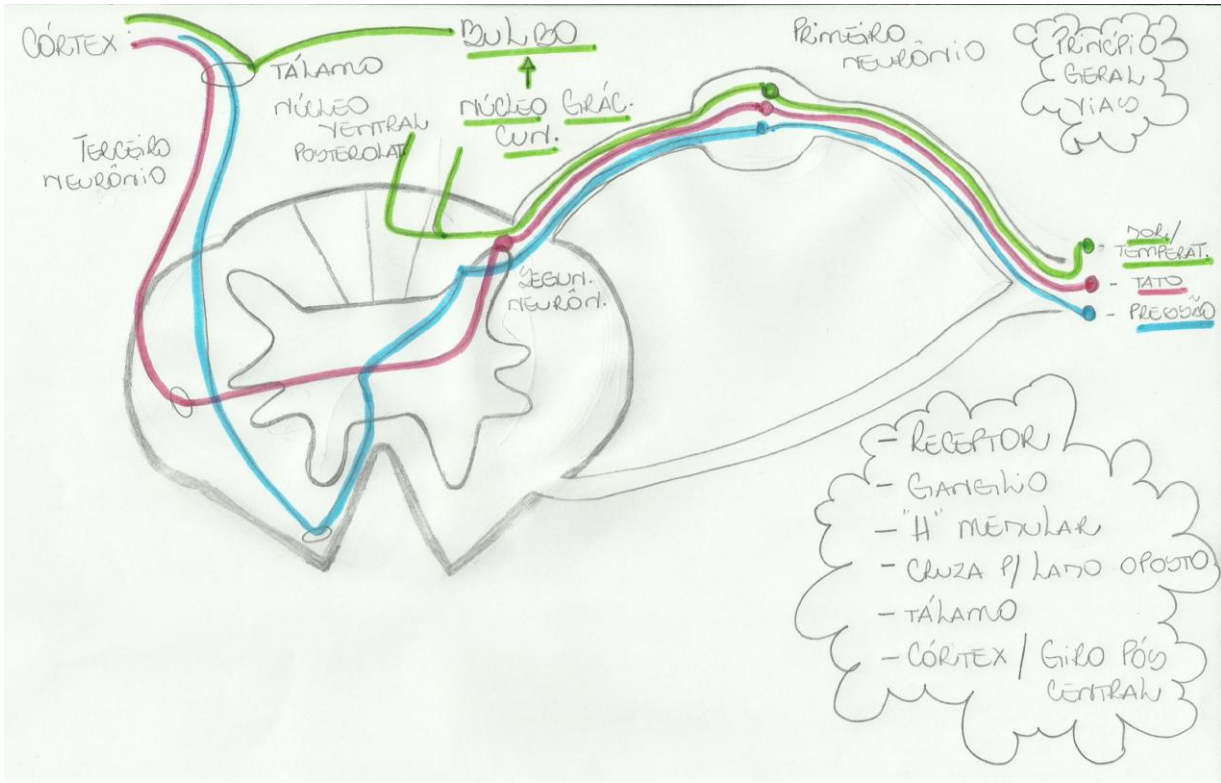 CÓRTEX
TÁLAMO
NÚCLEO
VENTRAL
POSTEROLAT.
BULBO
NÚCLEO GRÁC.
CUN.
TERCEIRO
NEURÔNIO
PRIMEIRO
NEURÔNIO
PRINCÍPIO
GERAL
VIAS
SEGUN.
NEURÔN.
- DOR/
TEMPERAT.
- TATO
- PRESSÃO
- RECEPTOR
- GANGLIO
- "H" MEDULAR
- CRUZA P/ LADO OPOSTO
- TÁLAMO
- CÓRTEX / GIRO PÓS
CENTRAL